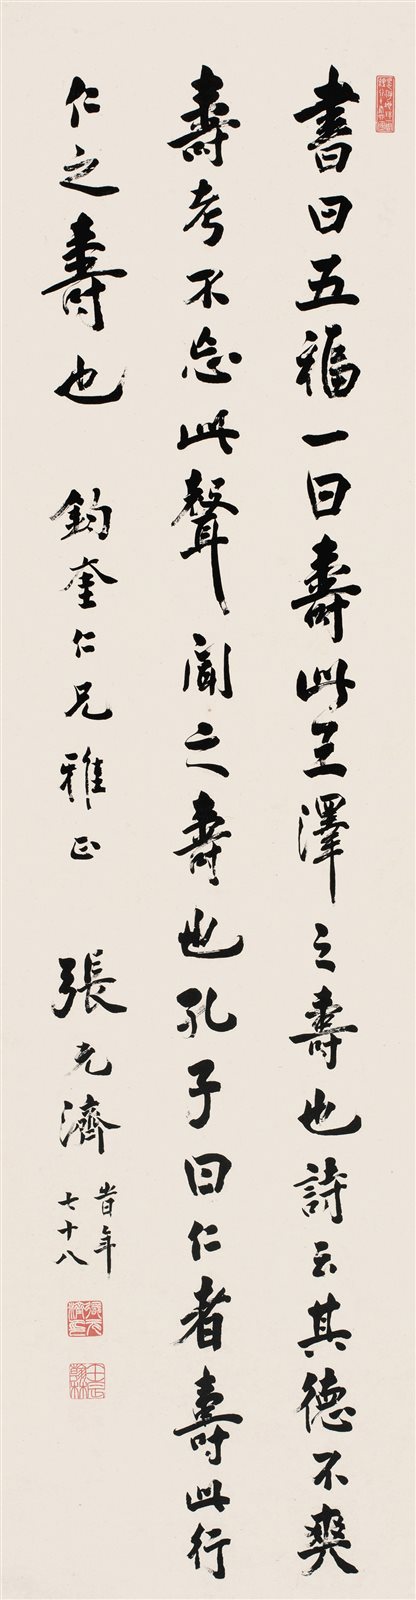 書曰五福一曰壽此王澤之壽也詩云其德不爽
壽考不忘此聲聞之壽也孔子曰仁者壽此行
仁之壽也
鈞奎仁兄雅正
張元濟
時年
七十八
張元濟印
壬辰翰林